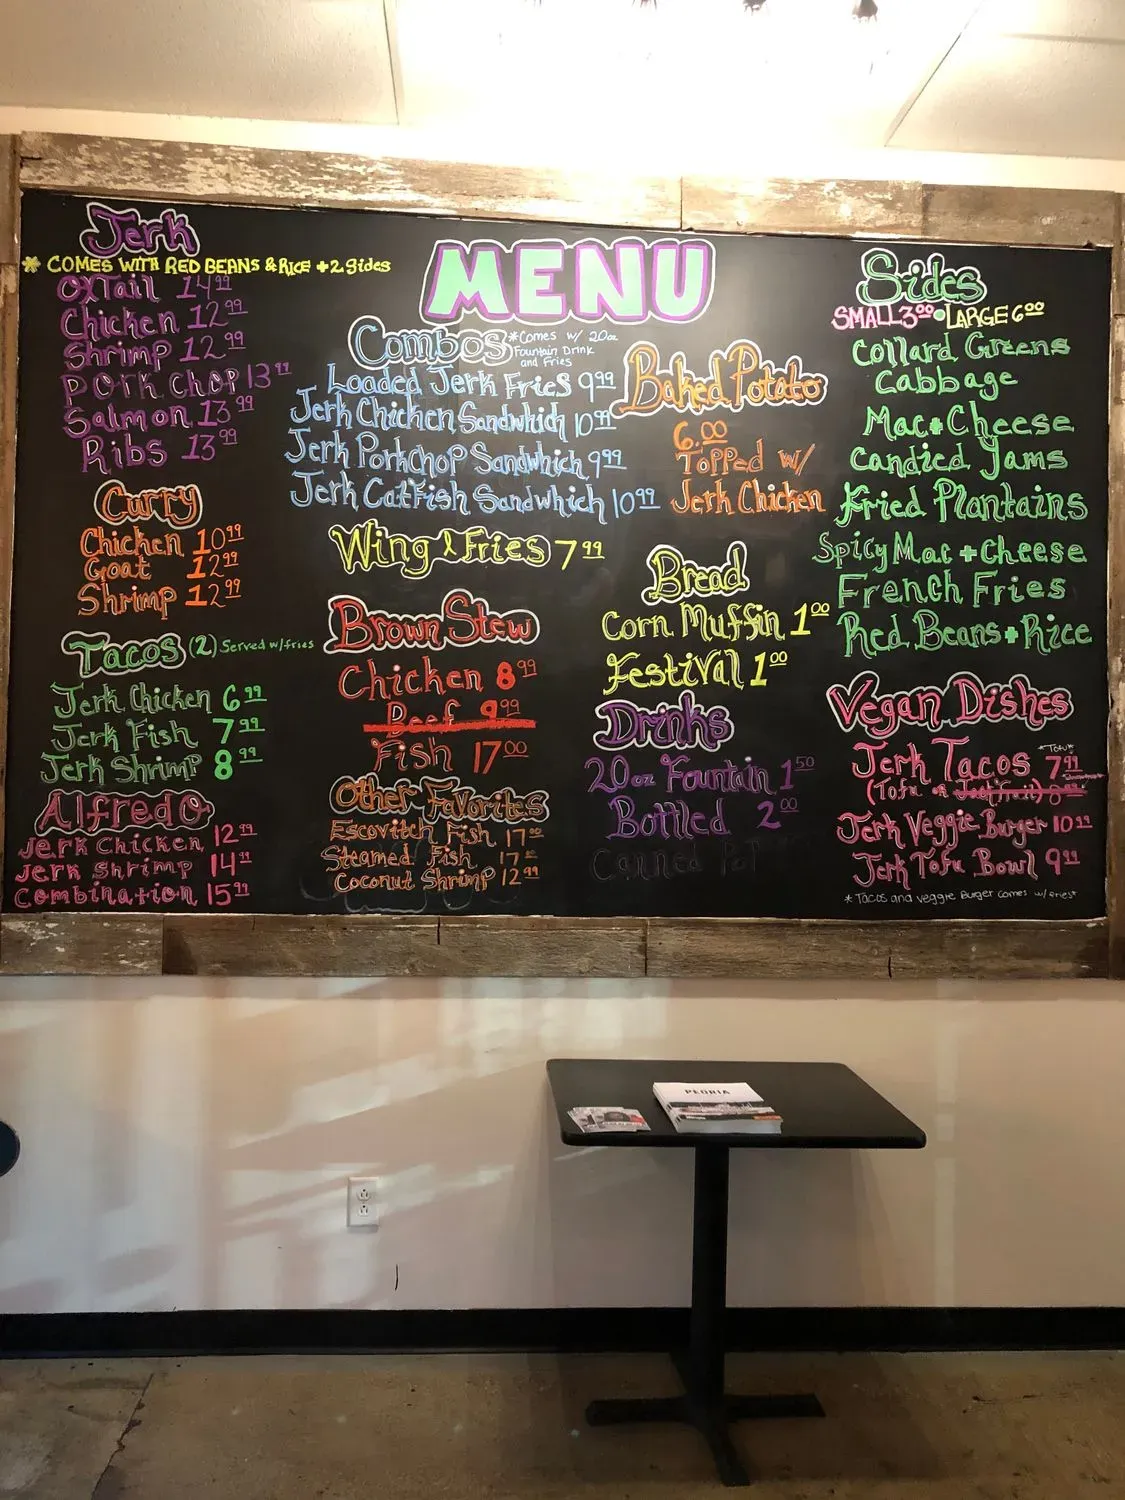 Jerk
* COMES WITH RED BEANS & RICE + 2 Sides
OxTail 14.99
Chicken 12.99
Shrimp 12.99
Pork Chop 13.99
Salmon 13.99
Ribs 13.99
Curry
Chicken 10.99
Goat 12.99
Shrimp 12.99
Tacos (2) Served w/fries
Jerk Chicken 6.99
Jerk Fish 7.99
Jerk Shrimp 8.99
Alfredo
Jerk Chicken 12.99
Jerk Shrimp 14.99
Combination 15.99
MENU
Combos *Comes w/ 20oz
Fountain Drink
and Fries
Loaded Jerk Fries 9.99
Jerk Chicken Sandwhich 10.99
Jerk Porkchop Sandwhich 9.99
Jerk Catfish Sandwhich 10.99
Wing & Fries 7.99
Brown Stew
Chicken 8.99
Beef 9.99
Fish 17.00
Other Favorites
Escovitch Fish 17.00
Steamed Fish 17.00
Coconut Shrimp 12.99
Baked Potato
6.00
Topped w/
Jerk Chicken
Bread
Corn Muffin 1.00
Festival 1.00
Drinks
20oz Fountain 1.50
Bottled 2.00
Canned Pop
Sides
SMALL 3.00 • LARGE 6.00
Collard Greens
Cabbage
Mac + Cheese
Candied Yams
Fried Plantains
Spicy Mac + Cheese
French Fries
Red Beans + Rice
Vegan Dishes
*Tofu*
Jerk Tacos 7.99
(Tofu or Jackfruit)
Jerk Veggie Burger 10.99
Jerk Tofu Bowl 9.99
* Tacos and veggie Burger comes w/ fries*
PEORIA